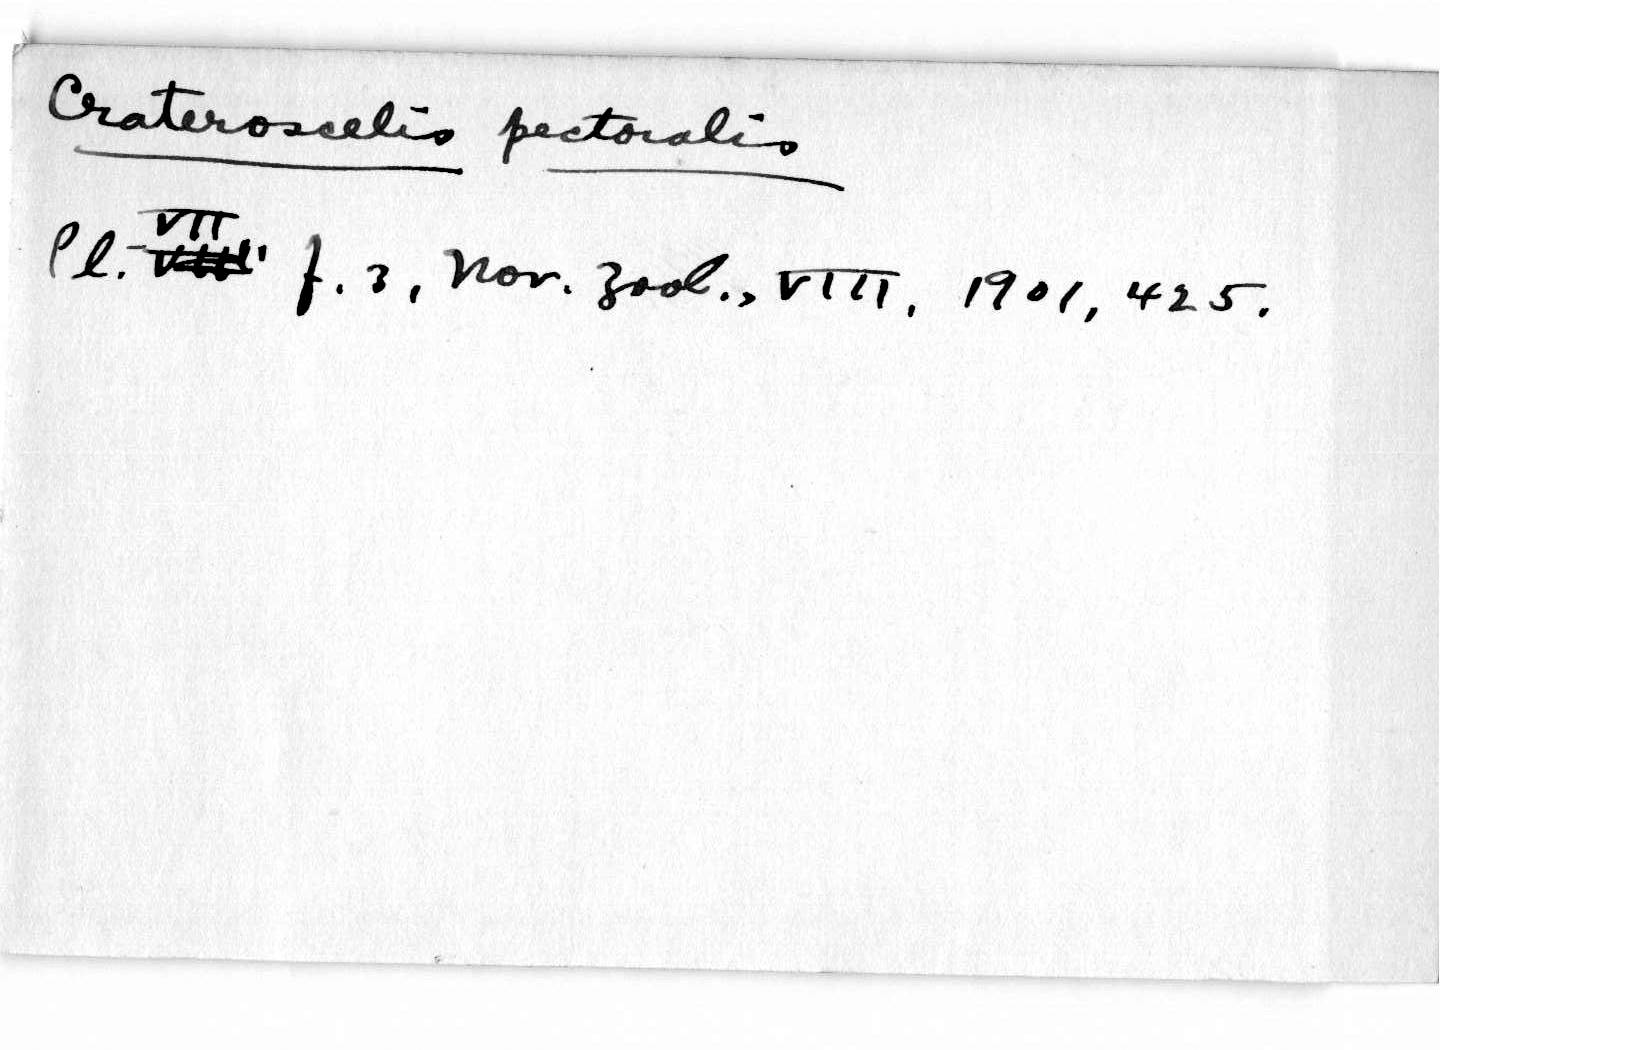 Crateroscelis pectoralis
Pl. VII f. 3, Nov. Zool., VIII, 1901, 425.